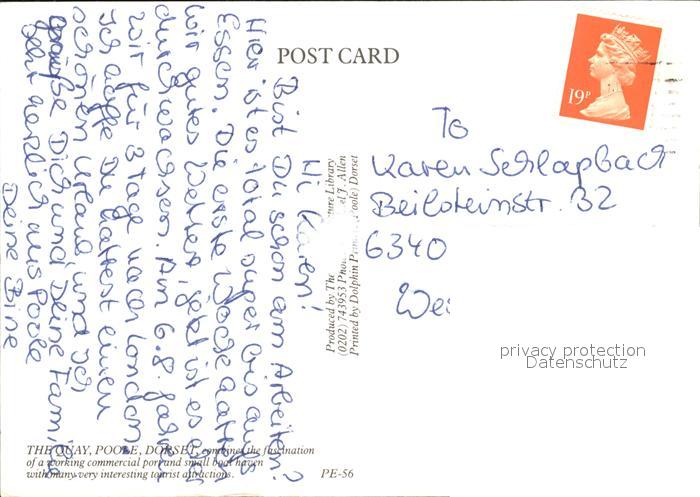 POST CARD
19P
To
Karen Schlapbach
Beilsteinstr. 32
6340
Wei
privacy protection
Datenschutz
Hi Karen!
Bist Du schon am Arbeiten?
Hier ist es total super bis aufs
Essen. Die erste Woche hatten
wir gutes Wetter, jetzt ist es eher
durchwachsen. Am 6.8. fahren
wir für 3 Tage nach London.
Ich hoffe Du hattest einen
schönen Urlaub und ich
grüße Dich und Deine Familie
ganz herzlich aus Poole
Deine Bine
Produced by The ture Library
(0202) 743953 Pho el J. Allen
Printed by Dolphin Prin Poole) Dorset
THE QUAY, POOLE, DORSET, combines the fascination
of a working commercial port and small boat haven
with many very interesting tourist attractions.
PE-56